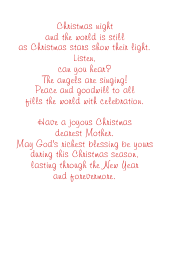 Christmas night
and the world is still
as Christmas stars show their light.
Listen,
can you hear?
The angels are singing!
Peace and goodwill to all
fills the world with celebration.

Have a joyous Christmas
dearest Mother.
May God's richest blessing be yours
during this Christmas season,
lasting through the New Year
and forevermore.